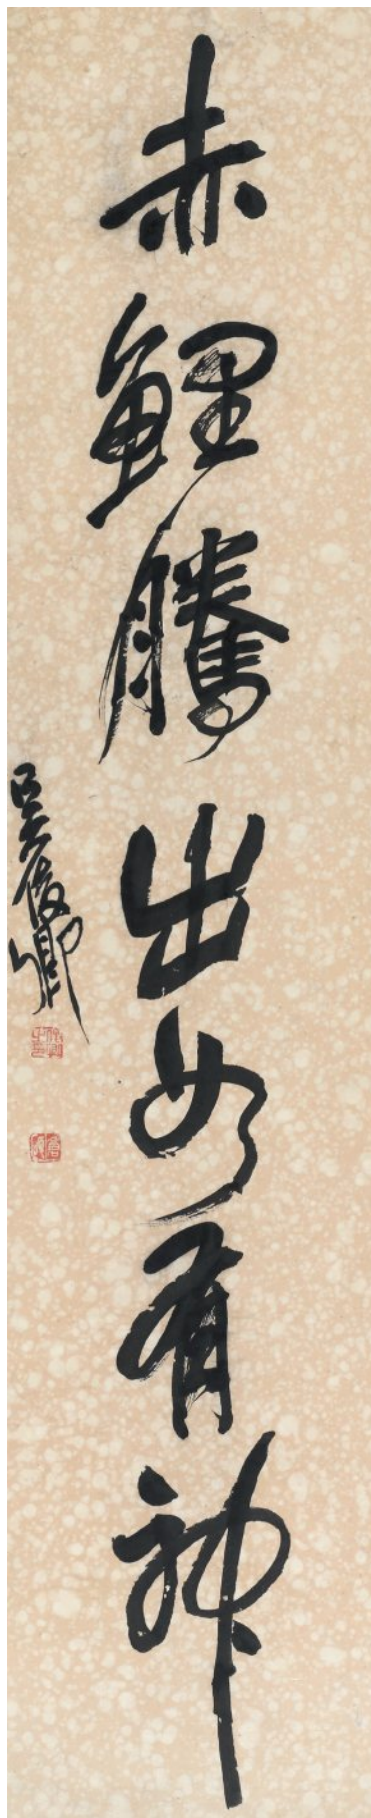 赤鯉騰出如有神
吳俊卿